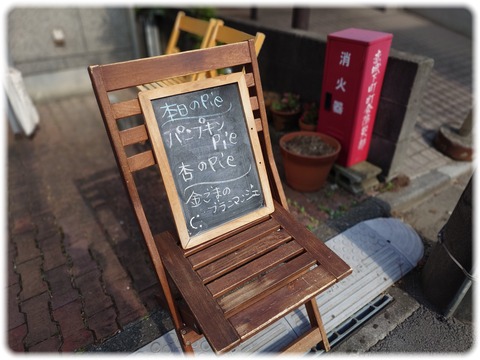 本日のPie
パンプキン
Pie
杏のPie
金ごまの
ブランマンジェ
C.
消火器